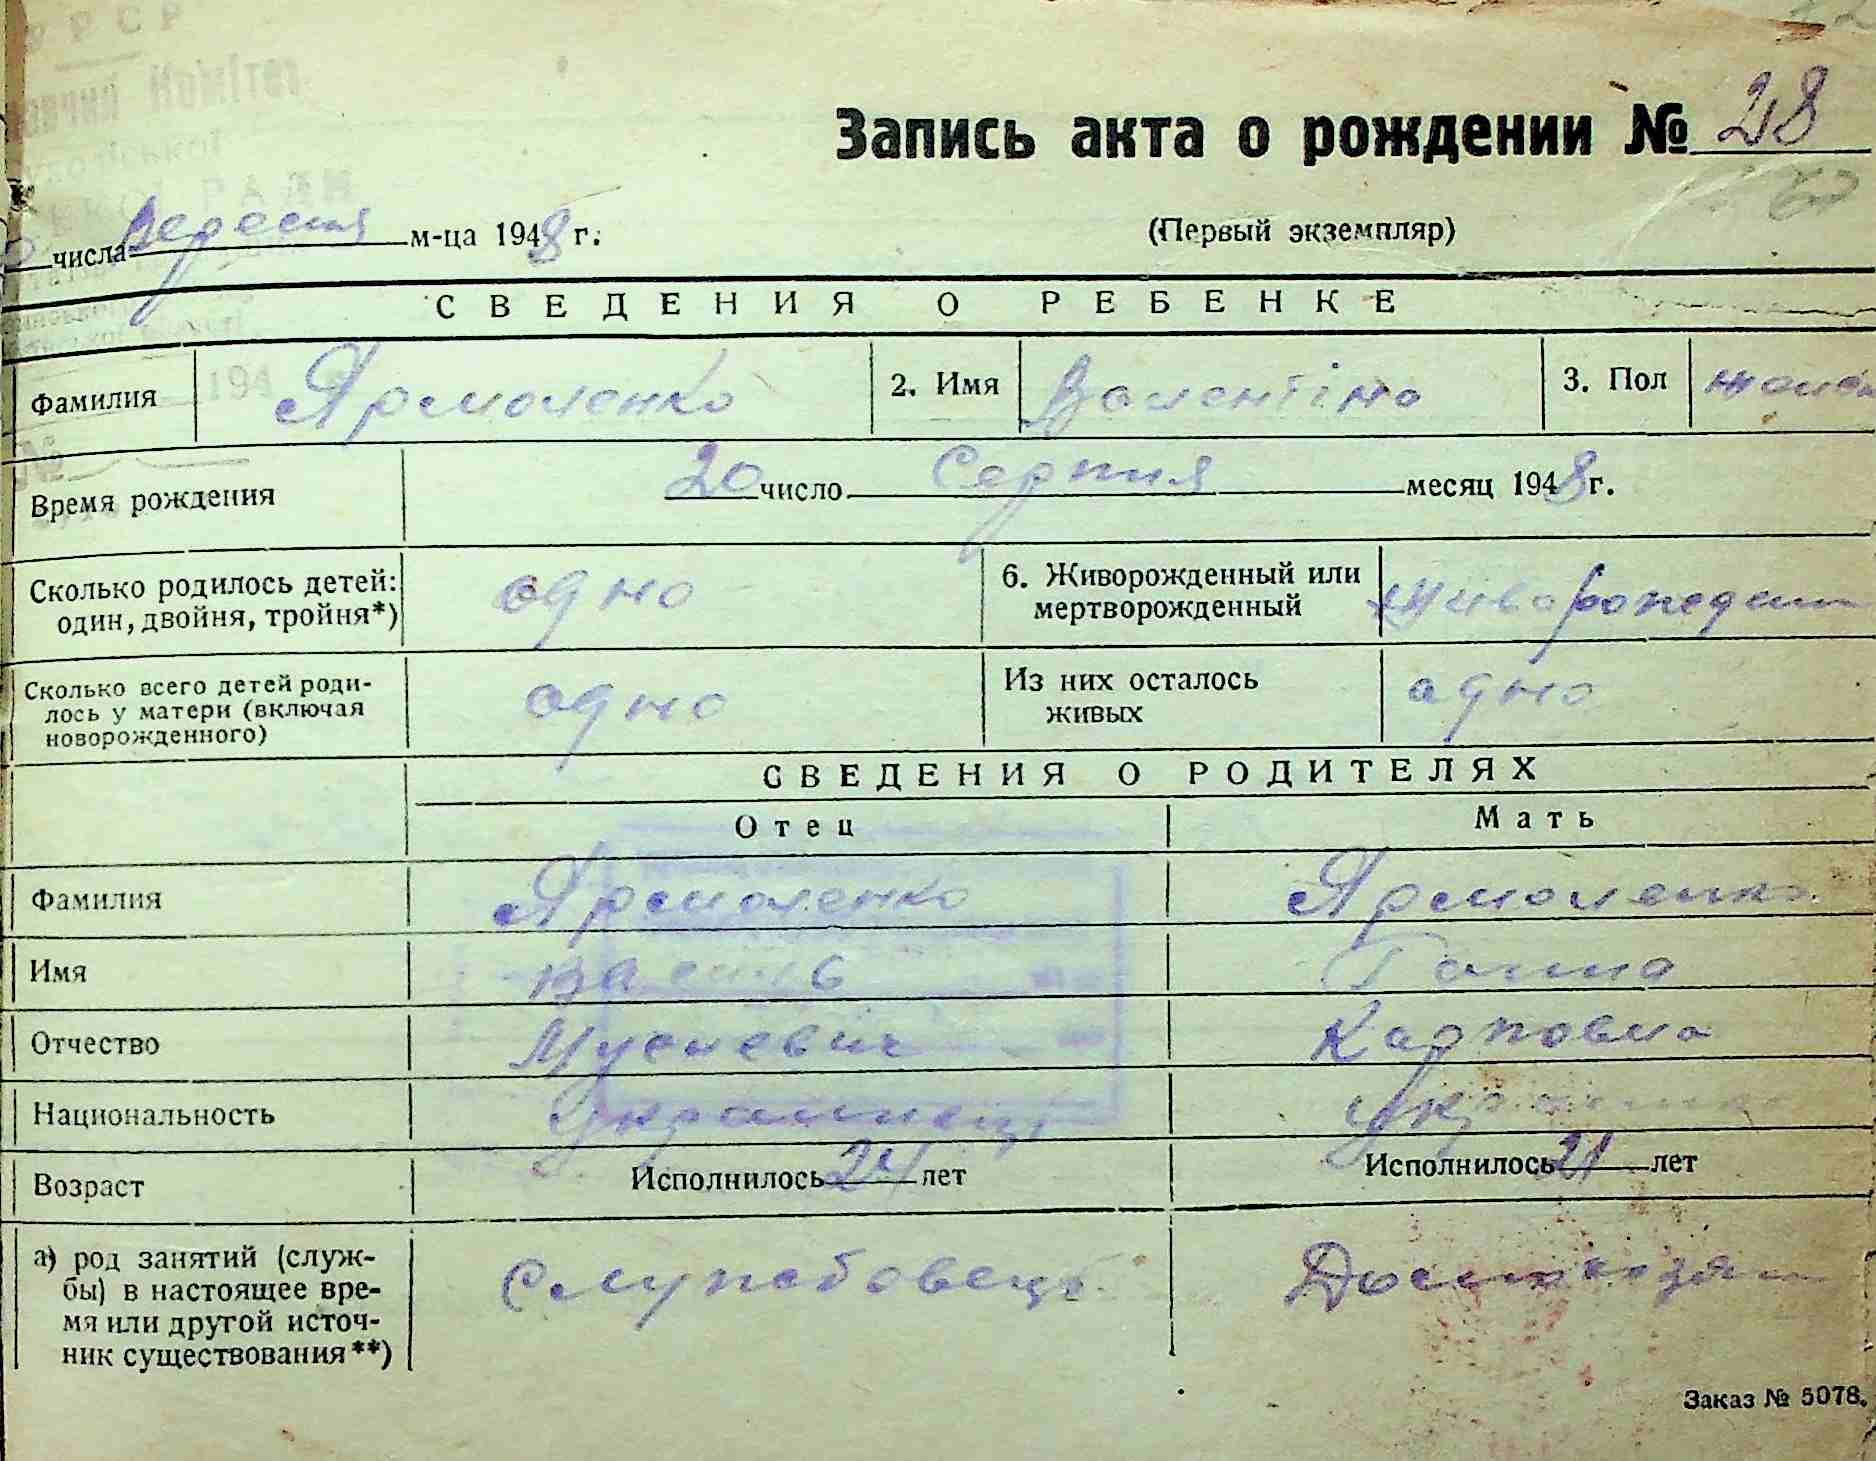 РРСР
Комітет
РАДИ
Запись акта о рождении № 28
числа Вересня м-ца 1948 г.
(Первый экземпляр)
СВЕДЕНИЯ О РЕБЕНКЕ
Фамилия Ярмоленко 2. Имя Валентіна 3. Пол
194
№
Время рождения 20 число Серпня месяц 1948 г.
Сколько родилось детей: один, двойня, тройня*) одно 6. Живорожденный или мертворожденный
Сколько всего детей роди-
лось у матери (включая
новорожденного) одно Из них осталось живых одно
СВЕДЕНИЯ О РОДИТЕЛЯХ
Отец Мать
Фамилия Ярмоленко Ярмоленко
Имя Василь Ганна
Отчество Мусиевич Карповна
Национальность украинець украинка
Возраст Исполнилось 24 лет Исполнилось 21 лет
а) род занятий (служ-
бы) в настоящее вре-
мя или другой источ-
ник существования**) Службовець
Заказ № 5078.